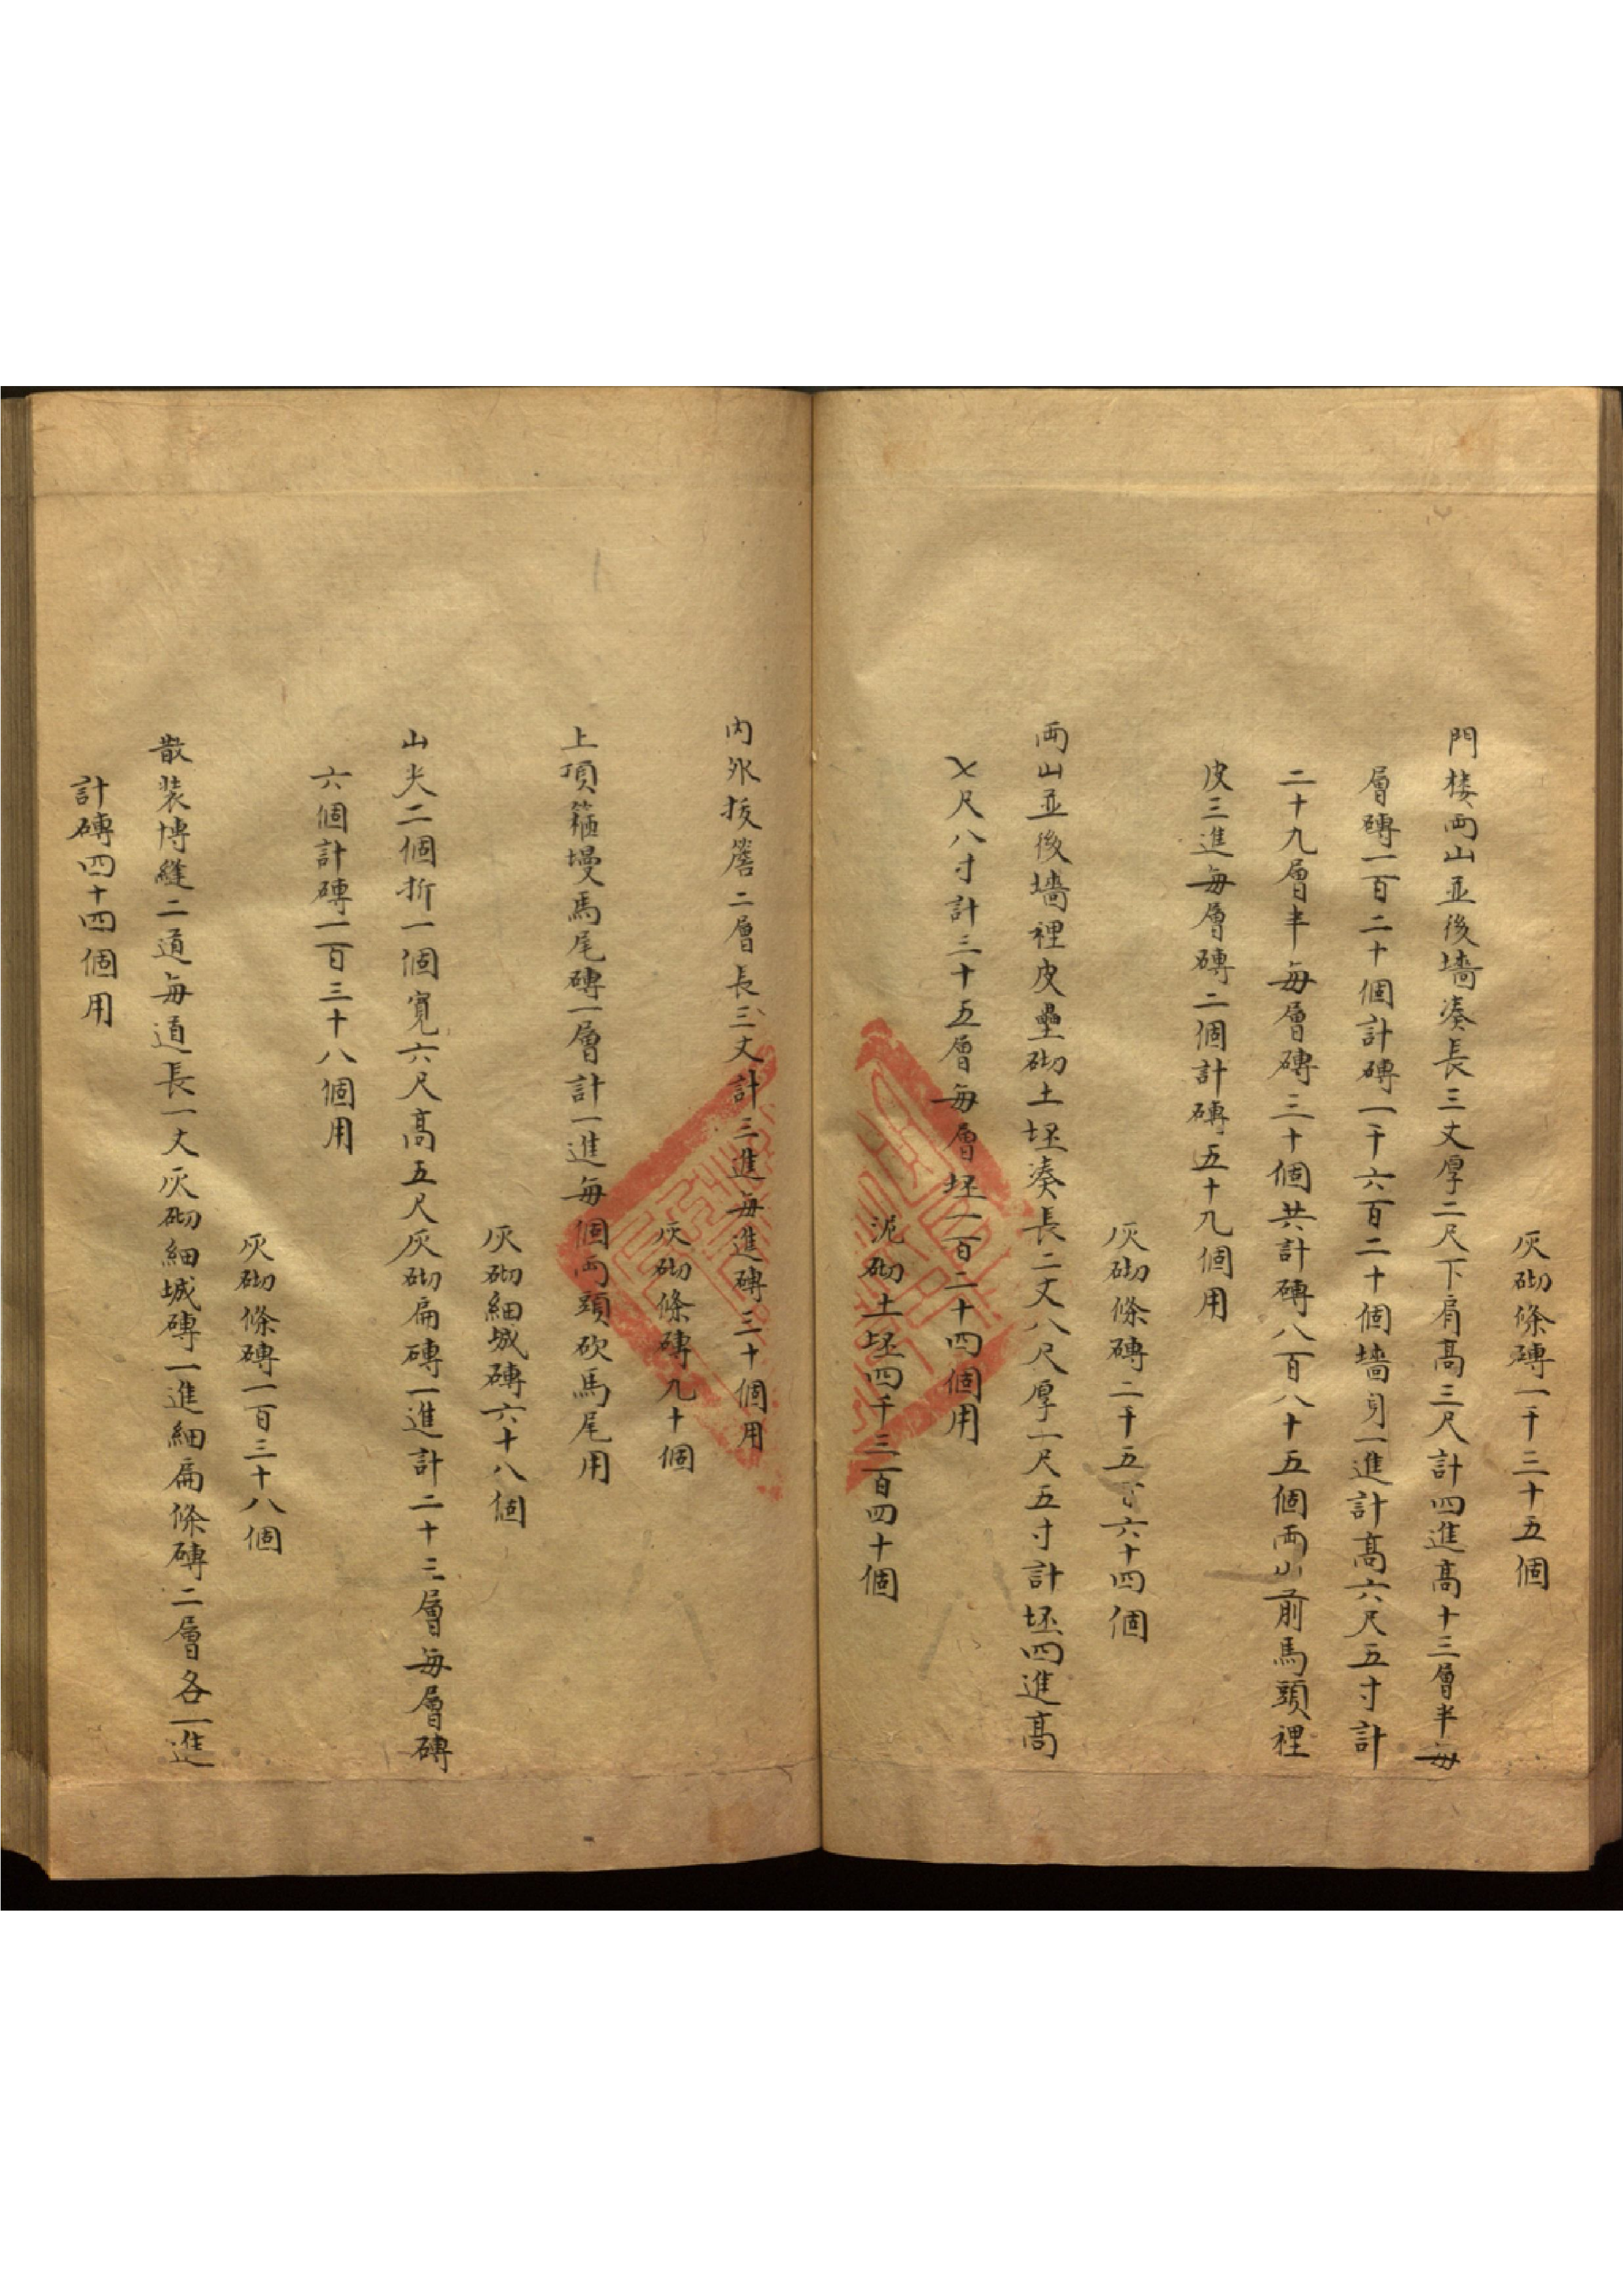 灰砌條磚一千三十五個
門楼両山並後墻凑長三丈厚二尺下肩髙三尺計四進髙十三層半每
層磚一百二十個計磚一千六百二十個墻身一進計髙六尺五寸計
二十九層半每層磚三十個共計磚八百八十五個両山前馬頭裡
皮三進每層磚二個計磚五十九個用
灰砌條磚二千五百六十四個
両山並後墻裡皮壘砌土坯凑長二丈八尺厚一尺五寸計坯四進髙
七尺八寸計三十五層每層坯一百二十四個用
泥砌土坯四千三百四十個
内外拔簷二層長三丈計三進每進磚三十個用
灰砌條磚九十個
上頂箍墁馬尾磚一層計一進每個両頭砍馬尾用
灰砌細城磚六十八個
山尖二個折一個寬六尺髙五尺灰砌扁磚一進計二十三層每層磚
六個計磚一百三十八個用
灰砌條磚一百三十八個
散装博縫二道每道長一丈灰砌細城磚一進細扁條磚二層各一進
計磚四十四個用